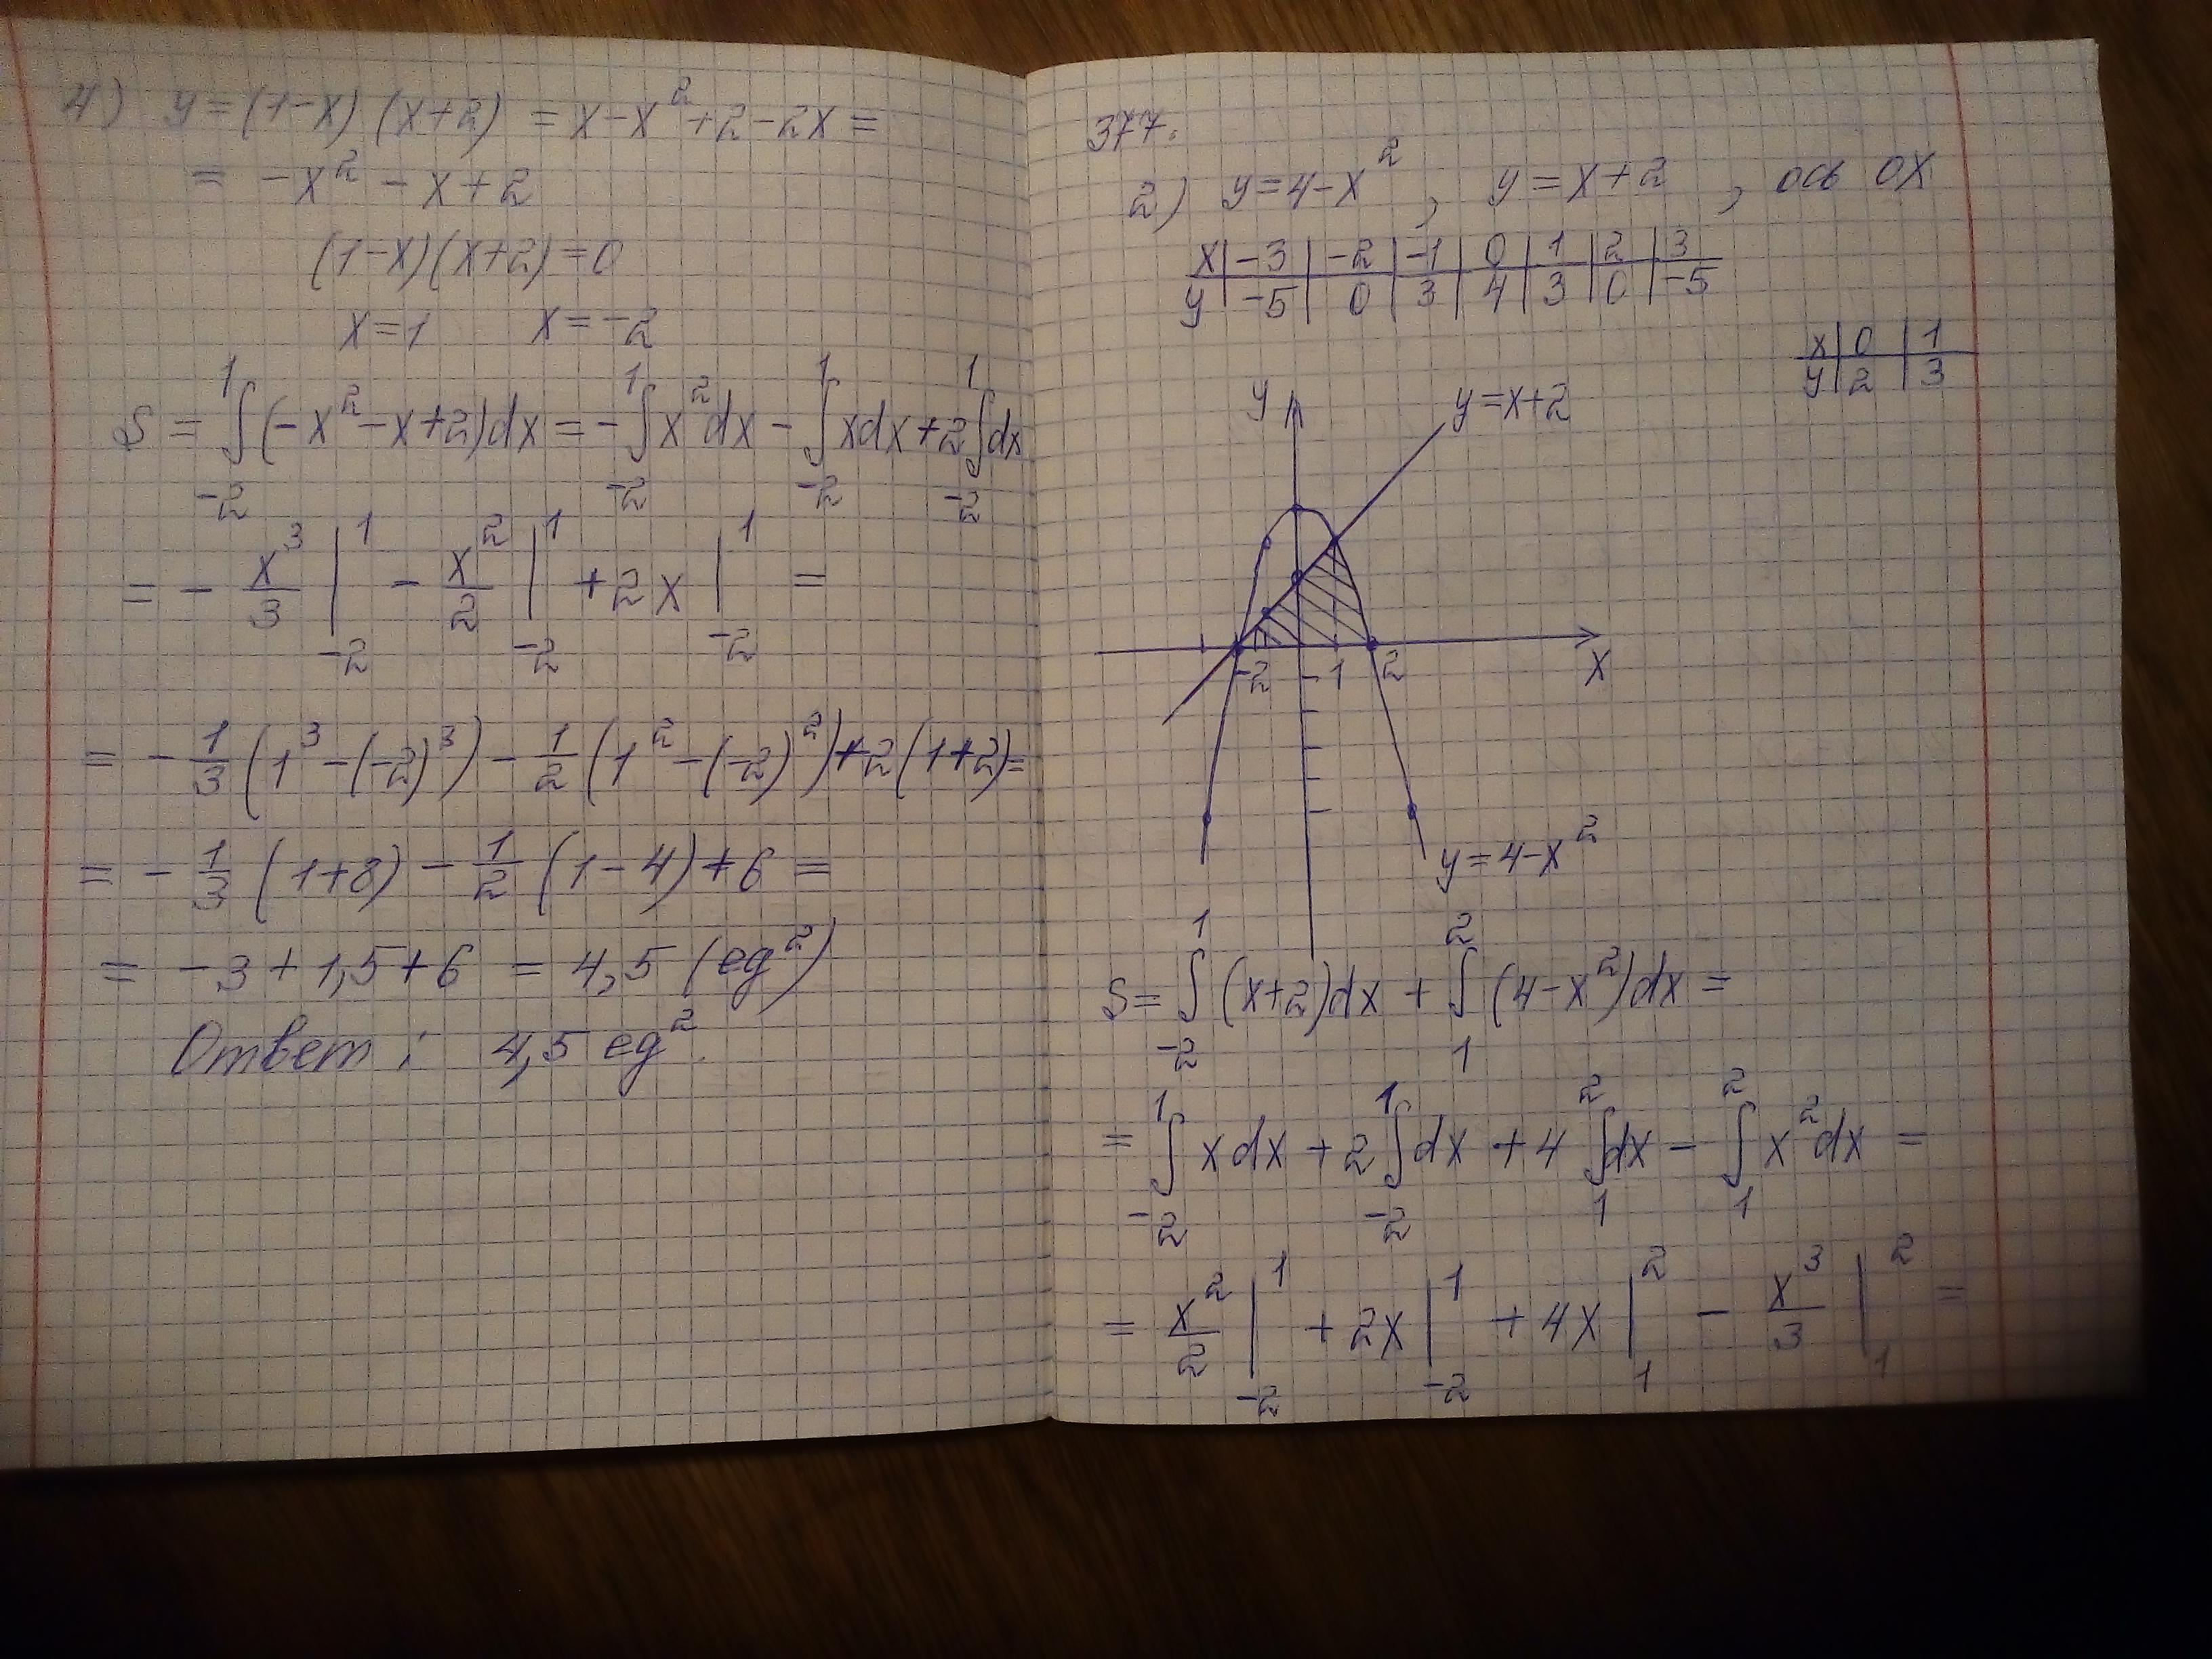 4) y = (1-x)(x+2) = x - x² + 2 - 2x =
= -x² - x + 2
(1-x)(x+2) = 0
x = 1 x = -2
S = ∫₋₂¹ (-x² - x + 2)dx = -∫₋₂¹ x²dx - ∫₋₂¹ xdx + 2∫₋₂¹ dx
= - x³/3 |₋₂¹ - x²/2 |₋₂¹ + 2x |₋₂¹ =
= - 1/3 (1³ - (-2)³) - 1/2 (1² - (-2)²) + 2(1+2) =
= - 1/3 (1+8) - 1/2 (1-4) + 6 =
= -3 + 1,5 + 6 = 4,5 (ед²)
Ответ: 4,5 ед².
377.
2) y = 4 - x², y = x + 2, ось OX
x | -3 | -2 | -1 | 0 | 1 | 2 | 3
y | -5 | 0 | 3 | 4 | 3 | 0 | -5
x | 0 | 1
y | 2 | 3
y
y = x+2
-2 1 2 x
y = 4-x²
S = ∫₋₂¹ (x+2)dx + ∫₁² (4-x²)dx =
= ∫₋₂¹ xdx + 2∫₋₂¹ dx + 4∫₁² dx - ∫₁² x²dx =
= x²/2 |₋₂¹ + 2x |₋₂¹ + 4x |₁² - x³/3 |₁² =